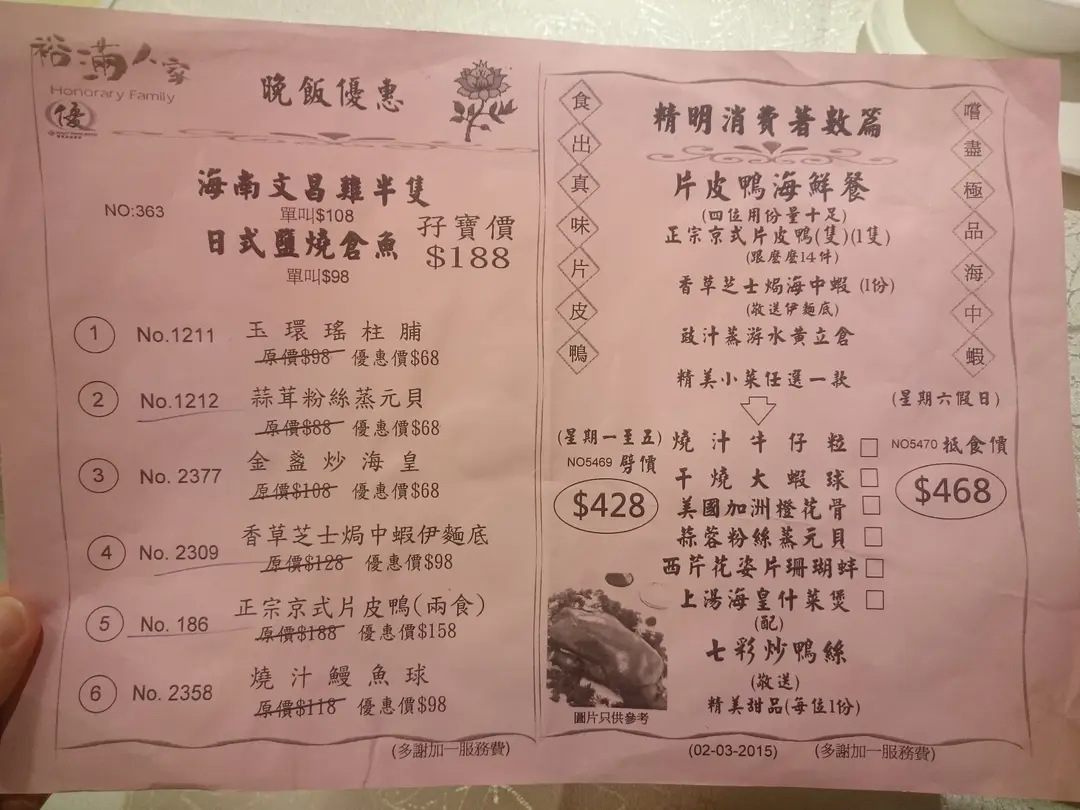 裕滿人家
Honorary Family
優
晚飯優惠
海南文昌雞半隻
NO:363
單叫$108
日式鹽燒倉魚
單叫$98
孖寶價
$188
1 No.1211 玉環瑤柱脯
原價$98 優惠價$68
2 No.1212 蒜茸粉絲蒸元貝
原價$88 優惠價$68
3 No. 2377 金盞炒海皇
原價$108 優惠價$68
4 No. 2309 香草芝士焗中蝦伊麵底
原價$128 優惠價$98
5 No. 186 正宗京式片皮鴨(兩食)
原價$188 優惠價$158
6 No. 2358 燒汁鰻魚球
原價$118 優惠價$98
(多謝加一服務費)
食出真味片皮鴨
精明消費著數篇
嚐盡極品海中蝦
片皮鴨海鮮餐
(四位用份量十足)
正宗京式片皮鴨(隻)(1隻)
(跟麼麼14件)
香草芝士焗海中蝦 (1份)
(敬送伊麵底)
豉汁蒸游水黄立倉
精美小菜任選一款
(星期一至五)
NO5469 劈價
$428
(星期六假日)
NO5470 抵食價
$468
燒汁牛仔粒 □
干燒大蝦球 □
美國加洲橙花骨 □
蒜蓉粉絲蒸元貝 □
西芹花姿片珊瑚蚌 □
上湯海皇什菜煲 □
(配)
七彩炒鴨絲
(敬送)
精美甜品(每位1份)
圖片只供參考
(02-03-2015) (多謝加一服務費)